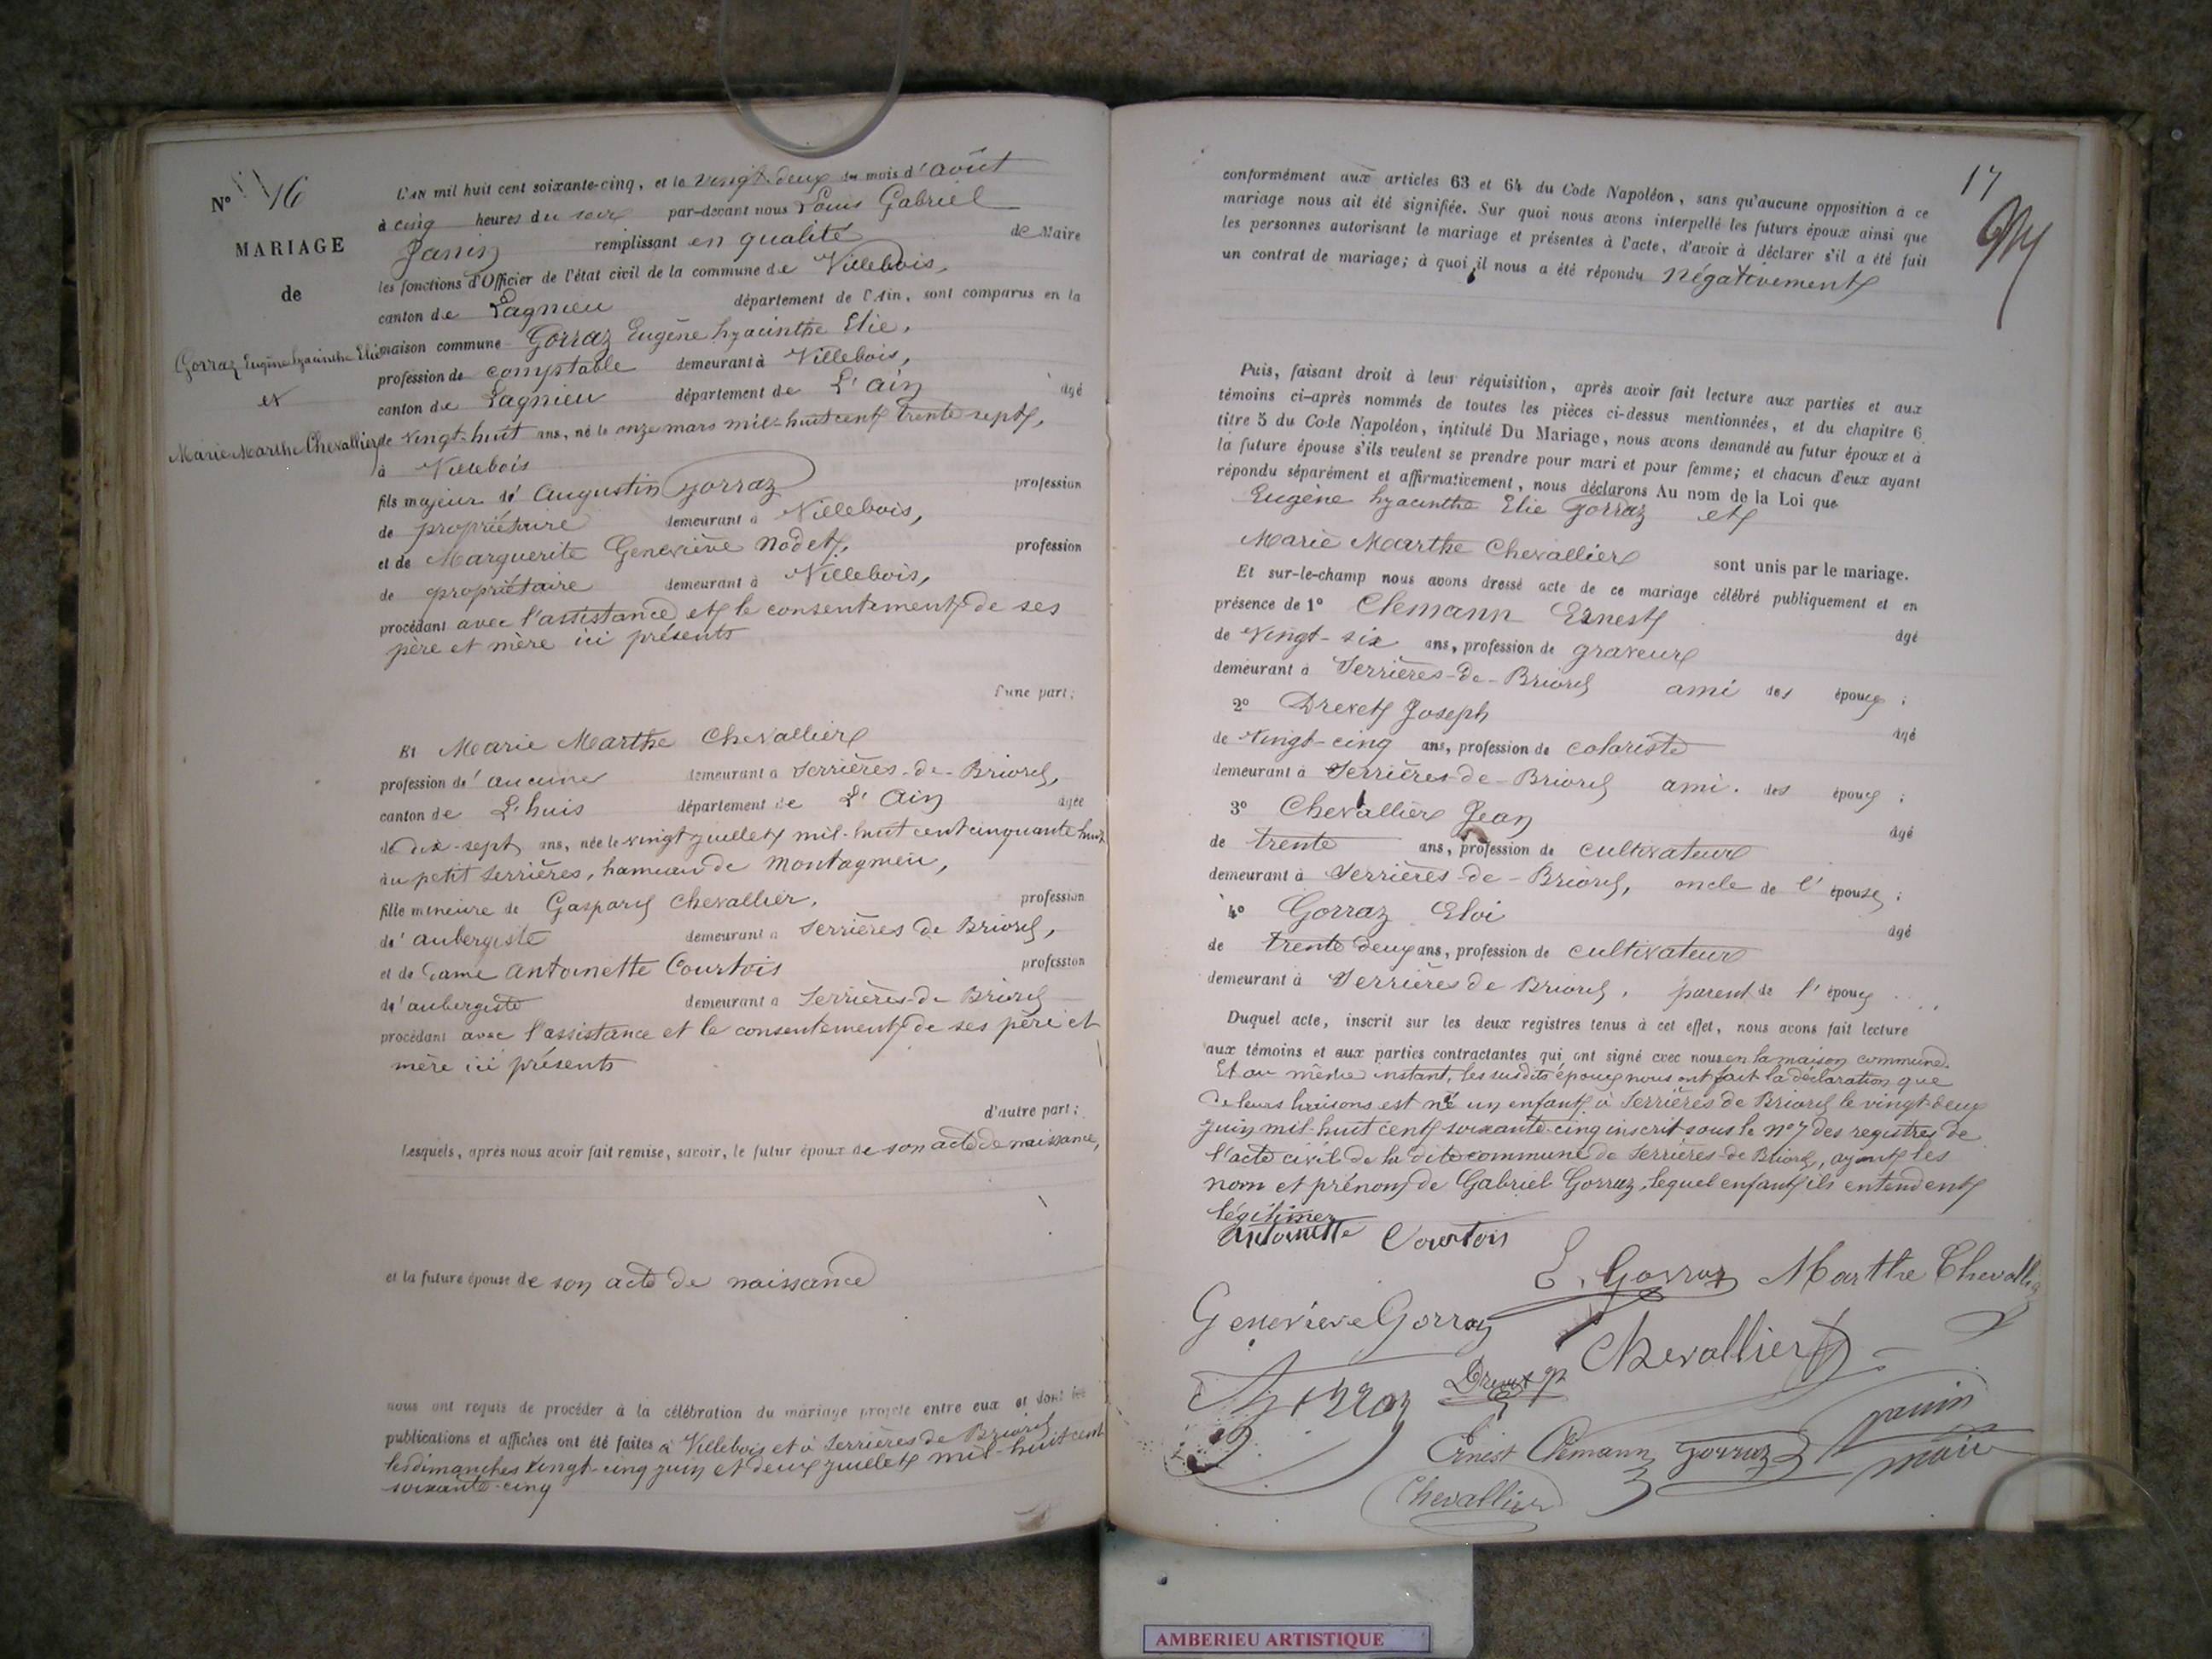 N° 16
MARIAGE
de
Gorraz Eugène hyacinthe Elie
et
Marie Marthe Chevallier
L'AN mil huit cent soixante-cinq, et le vingt-deux du mois d'août
à cinq heures du soir par-devant nous Louis Gabriel
Janin remplissant en qualité de Maire
les fonctions d'Officier de l'état civil de la commune de Villebois,
canton de Lagnieu département de l'Ain, sont comparus en la
maison commune Gorraz Eugène hyacinthe Elie,
profession de comptable demeurant à Villebois,
canton de Lagnieu département de L'Ain âgé
de vingt-huit ans, né le onze mars mil-huit cent trente sept,
à Villebois
fils majeur de Augustin Gorraz profession
de propriétaire demeurant à Villebois,
et de Marguerite Geneviève Nodet, profession
de propriétaire demeurant à Villebois,
procédant avec l'assistance et le consentement de ses
père et mère ici présents
d'une part;
Et Marie Marthe Chevallier
profession d'aucune demeurant à Serrières-de-Briord,
canton de L'huis département de L'Ain âgée
de dix-sept ans, née le vingt juillet mil-huit cent cinquante huit
au petit Serrières, hameau de Montagnieu,
fille mineure de Gaspard Chevallier, profession
d'aubergiste demeurant à Serrières de Briord,
et de Dame Antoinette Courtois profession
d'aubergiste demeurant à Serrières-de-Briord
procédant avec l'assistance et le consentement de ses père et
mère ici présents
d'autre part;
Lesquels, après nous avoir fait remise, savoir, le futur époux de son acte de naissance,
et la future épouse de son acte de naissance
nous ont requis de procéder à la célébration du mariage projeté entre eux et dont les
publications et affiches ont été faites à Villebois et à Serrières de Briord
les dimanches vingt-cinq juin et deux juillet mil-huit cent
soixante-cinq
17
conformément aux articles 63 et 64 du Code Napoléon, sans qu'aucune opposition à ce
mariage nous ait été signifiée. Sur quoi nous avons interpellé les futurs époux ainsi que
les personnes autorisant le mariage et présentes à l'acte, d'avoir à déclarer s'il a été fait
un contrat de mariage; à quoi il nous a été répondu négativement
Puis, faisant droit à leur réquisition, après avoir fait lecture aux parties et aux
témoins ci-après nommés de toutes les pièces ci-dessus mentionnées, et du chapitre 6
titre 5 du Code Napoléon, intitulé Du Mariage, nous avons demandé au futur époux et à
la future épouse s'ils veulent se prendre pour mari et pour femme; et chacun d'eux ayant
répondu séparément et affirmativement, nous déclarons Au nom de la Loi que
Eugène hyacinthe Elie Gorraz et
Marie Marthe Chevallier sont unis par le mariage.
Et sur-le-champ nous avons dressé acte de ce mariage célébré publiquement et en
présence de 1° Clemann Ernest âgé
de vingt-six ans, profession de graveur
demeurant à Serrières-de-Briord ami des époux;
2° Drevet Joseph âgé
de vingt-cinq ans, profession de coloriste
demeurant à Serrières-de-Briord ami. des époux;
3° Chevallier Jean âgé
de trente ans, profession de cultivateur
demeurant à Serrières-de-Briord, oncle de l'épouse;
4° Gorraz Eloi âgé
de trente deux ans, profession de cultivateur
demeurant à Serrières de Briord, parent de l'époux
Duquel acte, inscrit sur les deux registres tenus à cet effet, nous avons fait lecture
aux témoins et aux parties contractantes qui ont signé avec nous en la maison commune.
Et au même instant, les susdits époux nous ont fait la déclaration que
de leurs liaisons est né un enfant à Serrières de Briord le vingt-deux
juin mil-huit cent soixante-cinq inscrit sous le n° 7 des registres de
l'acte civil de la dite commune de Serrières-de-Briord, ayant les
nom et prénom de Gabriel Gorraz, lequel enfant ils entendent
légitimer
Antoinette Courtois
E. Gorraz Marthe Chevallier
Geneviève Gorraz
Chevallier
Gorraz
Drevet
Ernest Clemann Gorraz
Janin
maire
Chevallier
AMBERIEU ARTISTIQUE